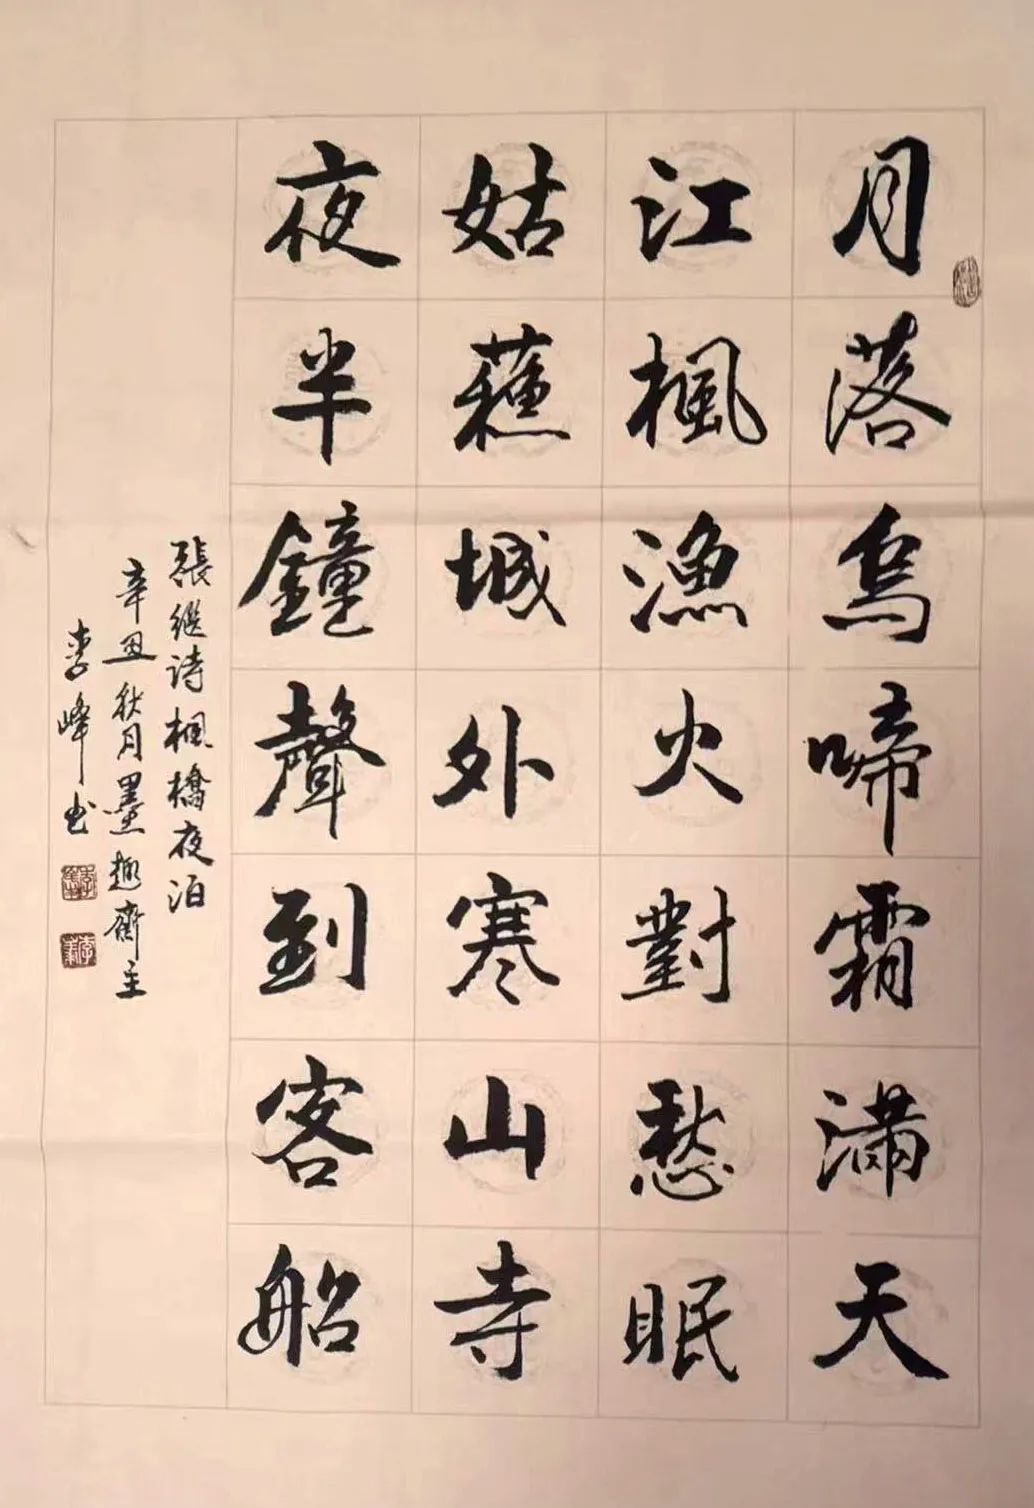 月落烏啼霜滿天
江楓漁火對愁眠
姑蘇城外寒山寺
夜半鐘聲到客船
張繼詩楓橋夜泊
辛丑秋月墨趣齋主
李峰书